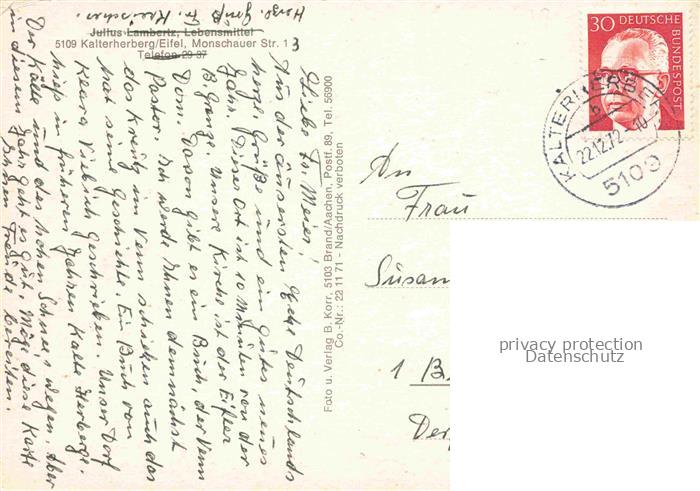 Herzl. Grüß Fr. Kreischer.
Julius Lambertz, Lebensmittel
5109 Kalterherberg/Eifel, Monschauer Str. 13
Telefon 29 37
Liebe Fr. Meier!
Aus der äussersten Ecke Deutschlands
herzl. Grüße und ein gutes neues
Jahr. Dieser Ort ist 10 Minuten von der
B. Grenze. Unsere Kirche ist der Eifler
Dom. Davon gibt es ein Buch, der Venn
Pastor. Ich werde Ihnen demnächst
das Kreuz im Venn schicken auch das
hat seine Geschichte. Ein Buch von
Klara Viebich geschrieben. Unser Dorf
hieß in früheren Jahren Kalte Herberge.
Der Kälte und des hohen Schnee's wegen. Aber
in diesem Jahr geht es gut. Möge diese Karte
Ihnen Freude bereiten.
Foto u. Verlag B. Korr, 5103 Brand/Aachen, Postf. 89, Tel. 56900
Co.-Nr.: 22 11 71 - Nachdruck verboten
30 DEUTSCHE
BUNDESPOST
KALTERHERBERG
b
22.12.72-10
5109
An
Frau
Susan
1 B
privacy protection
Datenschutz